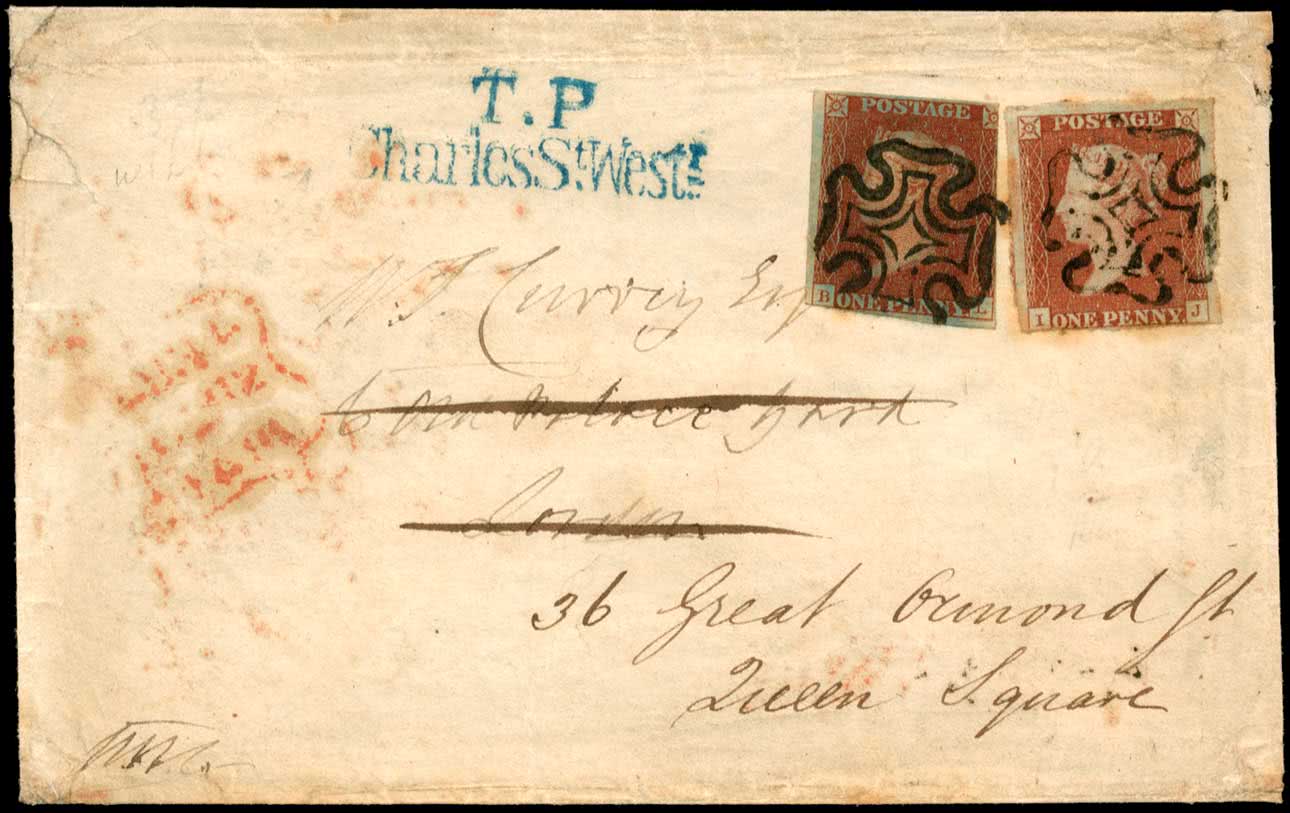 T.P
Charles St. Westr.
POSTAGE
B ONE PENNY L
POSTAGE
I ONE PENNY J
W. J. Currey Esq
6 Old Palace Yard
London
36 Great Ormond St
Queen Square